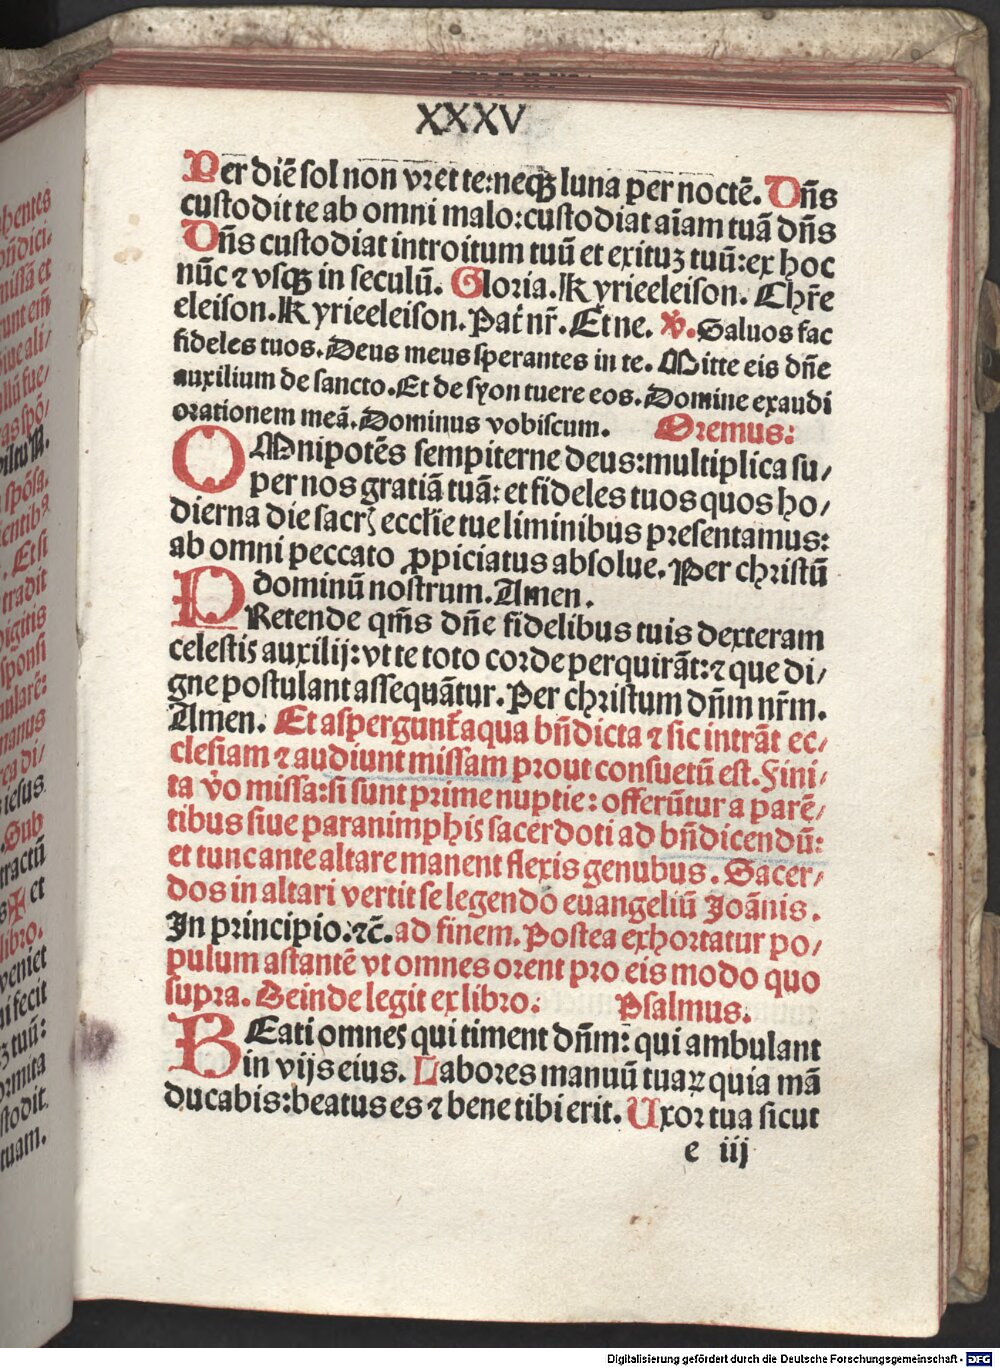 XXXV
Per diē sol non vret te:neqꝫ luna per noctē. Dn̄s
custodit te ab omni malo:custodiat aīam tuā dn̄s
Dn̄s custodiat introitum tuū et exituꝫ tuū:ex hoc
nūc ⁊ vsqꝫ in seculū. Gloria. Kyrieeleison. Chr̄e
eleison. Kyrieeleison. Pat̄ nr̄. Et ne. ℣. Saluos fac
fideles tuos. Deus meus sperantes in te. Mitte eis dn̄e
auxilium de sancto. Et de syon tuere eos. Domine exaudi
orationem meā. Dominus vobiscum. Oremus:
OMnipotēs sempiterne deus:multiplica su/
per nos gratiā tuā: et fideles tuos quos ho/
dierna die sacrꝫ eccl̄ie tue liminibus presentamus:
ab omni peccato ꝓpiciatus absolue. Per christū
dominū nostrum. Amen.
PRetende qm̄s dn̄e fidelibus tuis dexteram
celestis auxilij: vt te toto corde perquirāt: ⁊ que di/
gne postulant assequātur. Per christum dn̄m nr̄m.
Amen. Et aspergunt̄ aqua bn̄dicta ⁊ sic intrāt ec/
clesiam ⁊ audiunt missam prout consuetū est. Fini/
ta v̄o missa: si sunt prime nuptie: offerūtur a parē/
tibus siue paranimphis sacerdoti ad bn̄dicendū:
et tunc ante altare manent flexis genubus. Sacer/
dos in altari vertit se legendo euangeliū Joānis.
In principio. ⁊c̄. ad finem. Postea exhortatur po/
pulum astantē vt omnes orent pro eis modo quo
supra. Deinde legit ex libro. Psalmus.
BEati omnes qui timent dn̄m: qui ambulant
in vijs eius. Labores manuū tuaꝝ quia mā
ducabis: beatus es ⁊ bene tibi erit. Uxor tua sicut
e iij
Digitalisierung gefördert durch die Deutsche Forschungsgemeinschaft - DFG